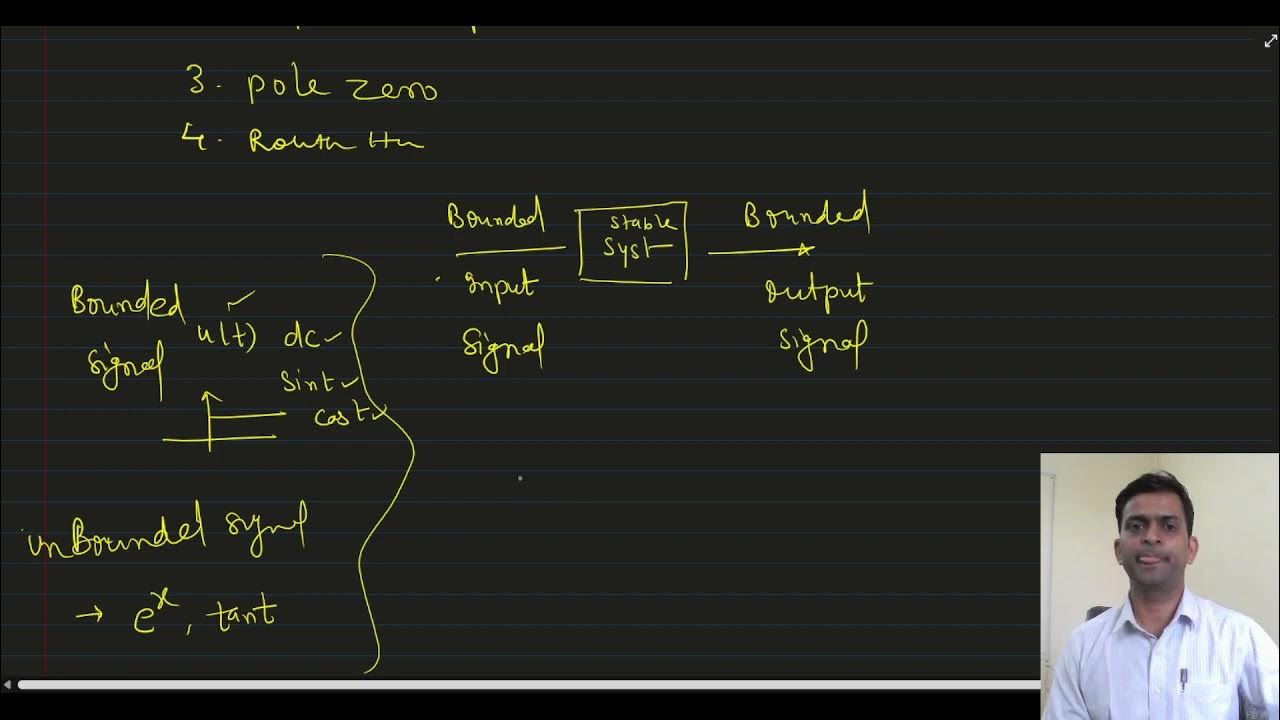 3. pole zero
4. Routh Hu
Bounded
Input
Signal
Stable
Syst
Bounded
Output
Signal
Bounded
Signal
u(t) dc
Sint
Cost
unBounded
→ e^x, tant